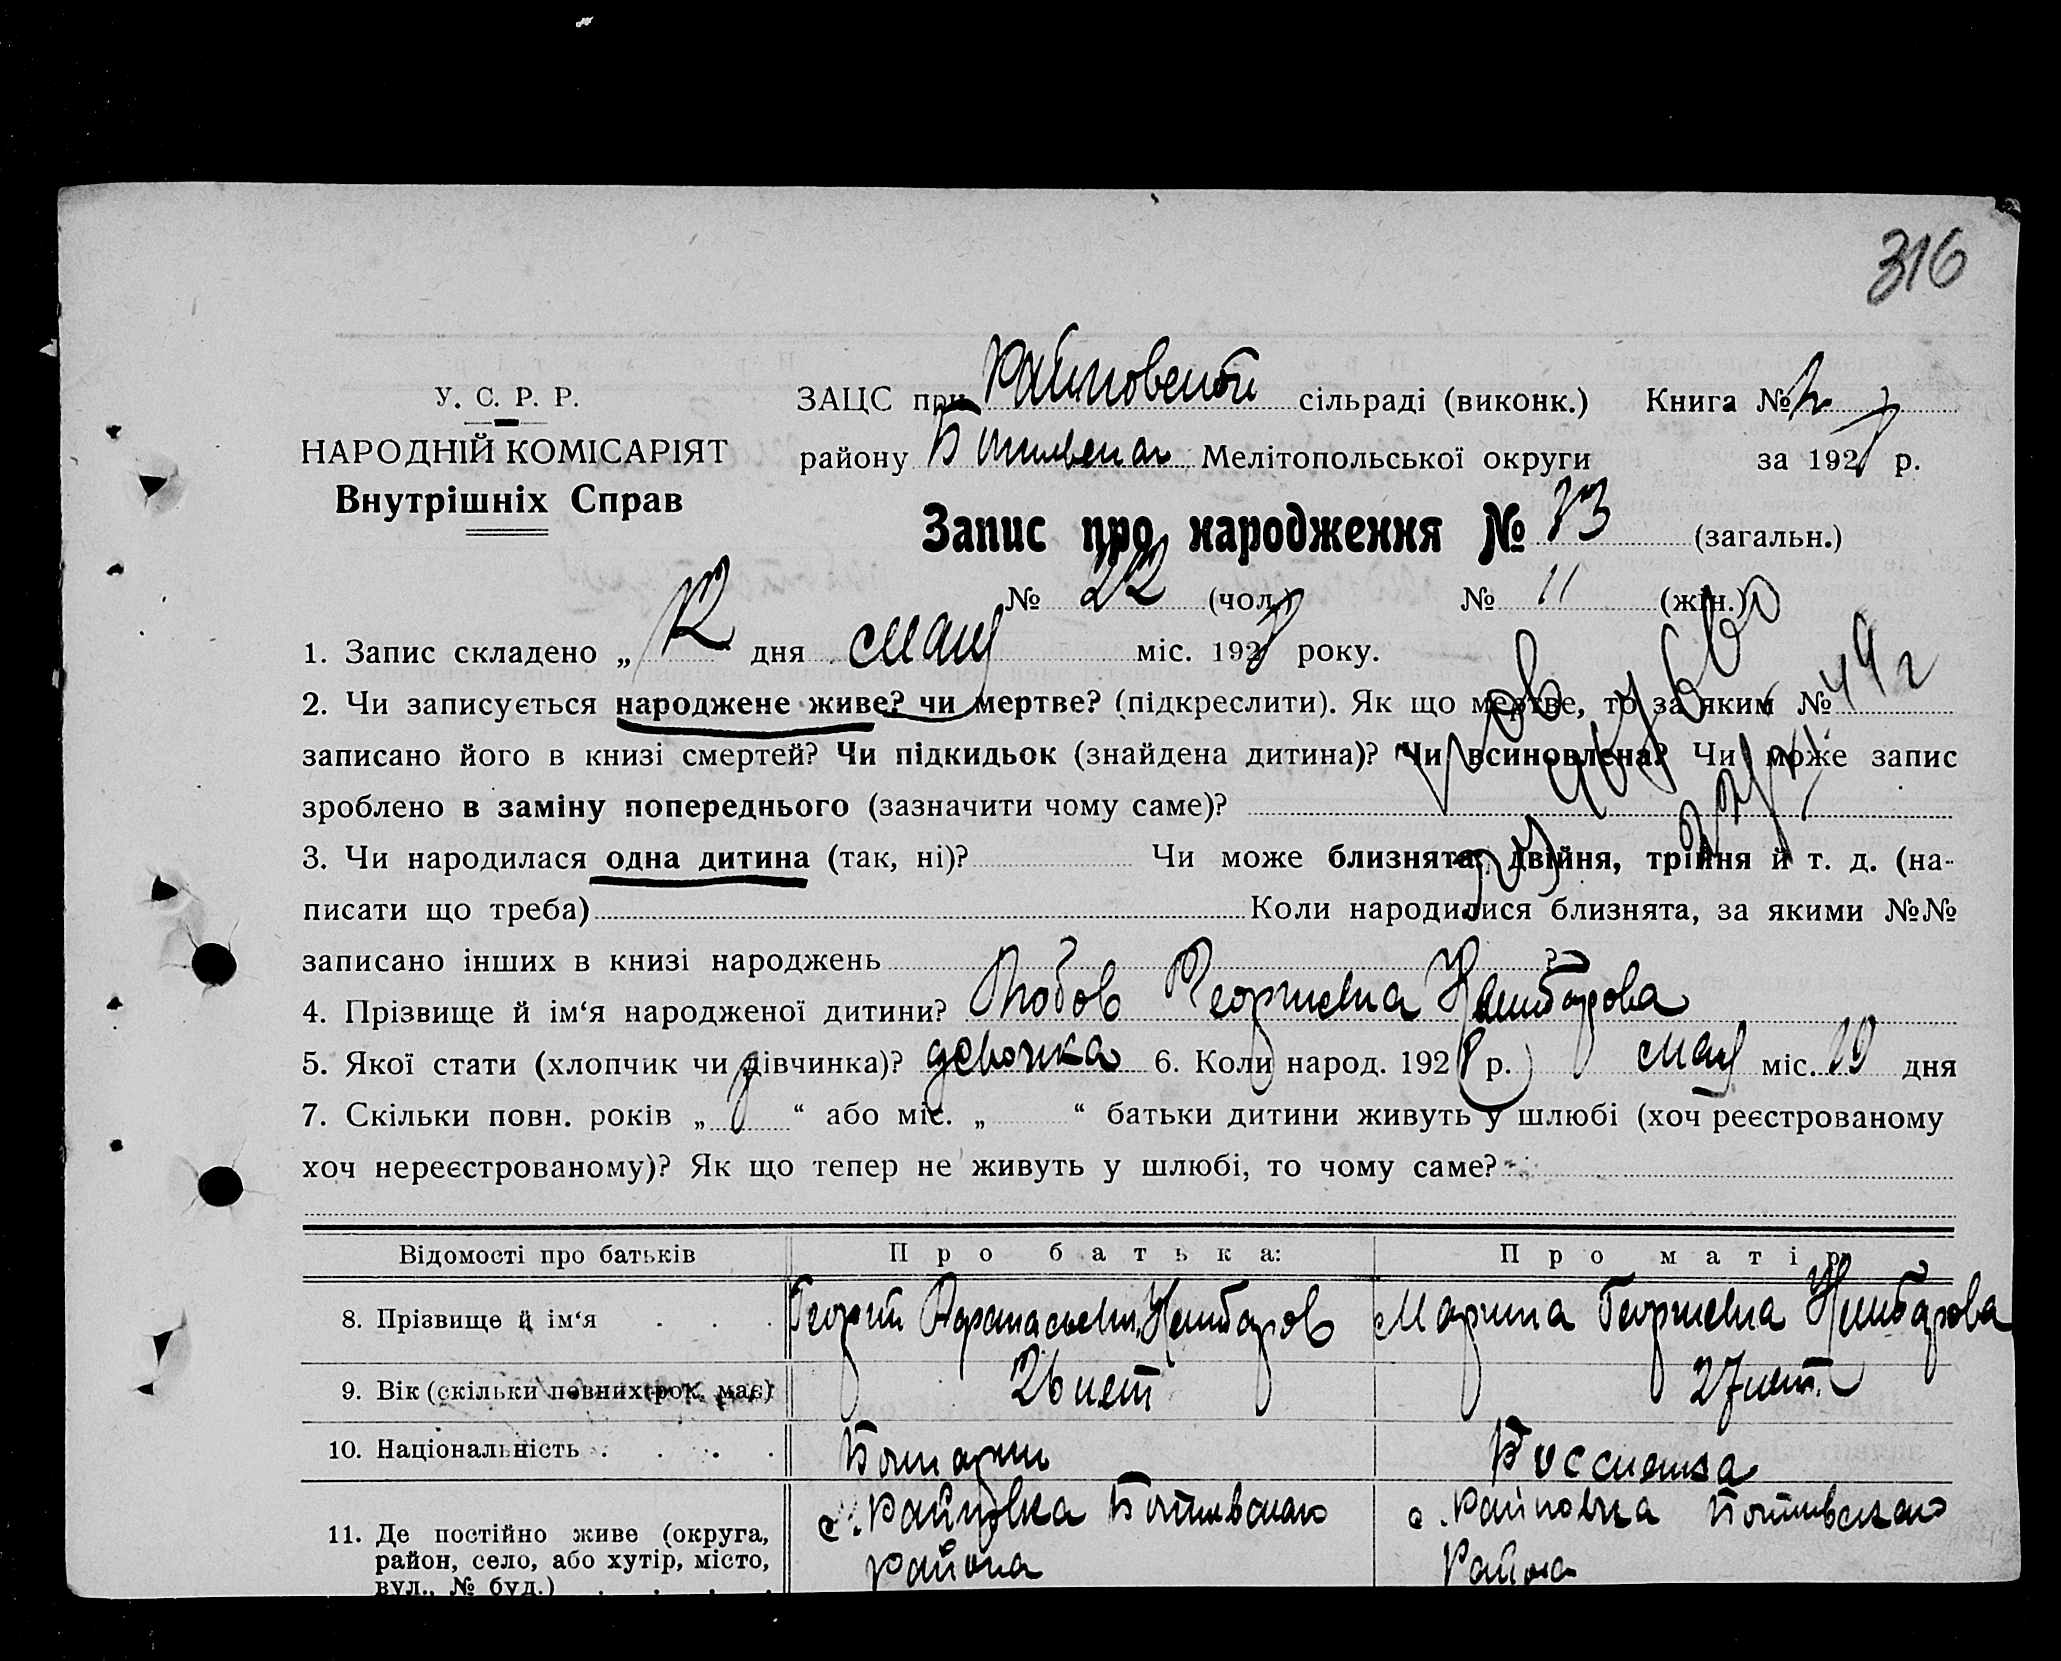 316
У. С. Р. Р.
НАРОДНІЙ КОМІСАРІЯТ
Внутрішніх Справ
ЗАЦС при сільраді (виконк.) Книга №
району Мелітопольської округи за 1928 р.
Запис про народження № 73 (загальн.)
№ 22 (чол.) № 11 (жін.)
1. Запис складено „ 12 дня мая міс. 1928 року.
2. Чи записується народжене живе? чи мертве? (підкреслити). Як що мертве, то за яким №
записано його в книзі смертей? Чи підкидьок (знайдена дитина)? Чи всиновлена? Чи може запис
зроблено в заміну попереднього (зазначити чому саме)?
3. Чи народилася одна дитина (так, ні)? Чи може близнята, двійня, трійня й т. д. (на-
писати що треба) Коли народилися близнята, за якими №№
записано інших в книзі народжень ?
4. Прізвище й ім‘я народженої дитини? Любов Георгиевна
5. Якої стати (хлопчик чи дівчинка)? девочка 6. Коли народ. 1928 р. мая міс. дня
7. Скільки повн. років „ “ або міс. „ “ батьки дитини живуть у шлюбі (хоч реєстрованому
хоч нереєстрованому)? Як що тепер не живуть у шлюбі, то чому саме?
Відомості про батьків Про батька: Про матір
8. Прізвище й ім‘я . . . Георгий Марина Георгиевна
9. Вік (скільки повних рок. має) 26 лет 27 лет.
10. Національність . . . . Болгарин
11. Де постійно живе (округа, с. Райновка Ботиевского с. Райновка Ботиевского
район, село, або хутір, місто, района района
вул., № буд.) . . . .